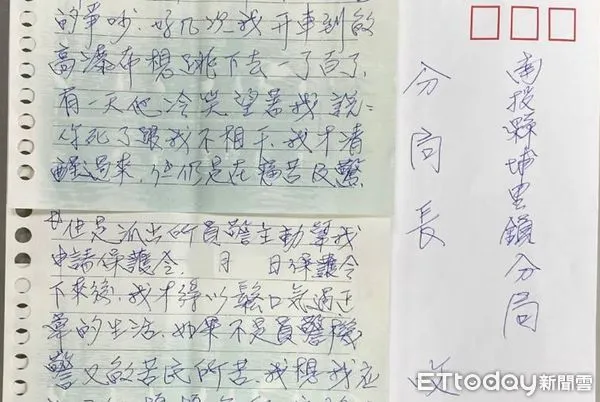 的爭吵,好几次我开車到敏
高瀑布想跳下去一了百了,
有一天他冷笑望着我說:
你死了跟我不相干,我才清
醒過來,但仍是在痛苦及驚
但是派出所員警主動幫我
申請保護令, 月 日保護令
下來後,我才得以鬆口氣過正
常的生活,如果不是員警機
警又敏苦民所苦,我想我应
南投縣埔里鎮分局
分局長
收
ETtoday新聞雲